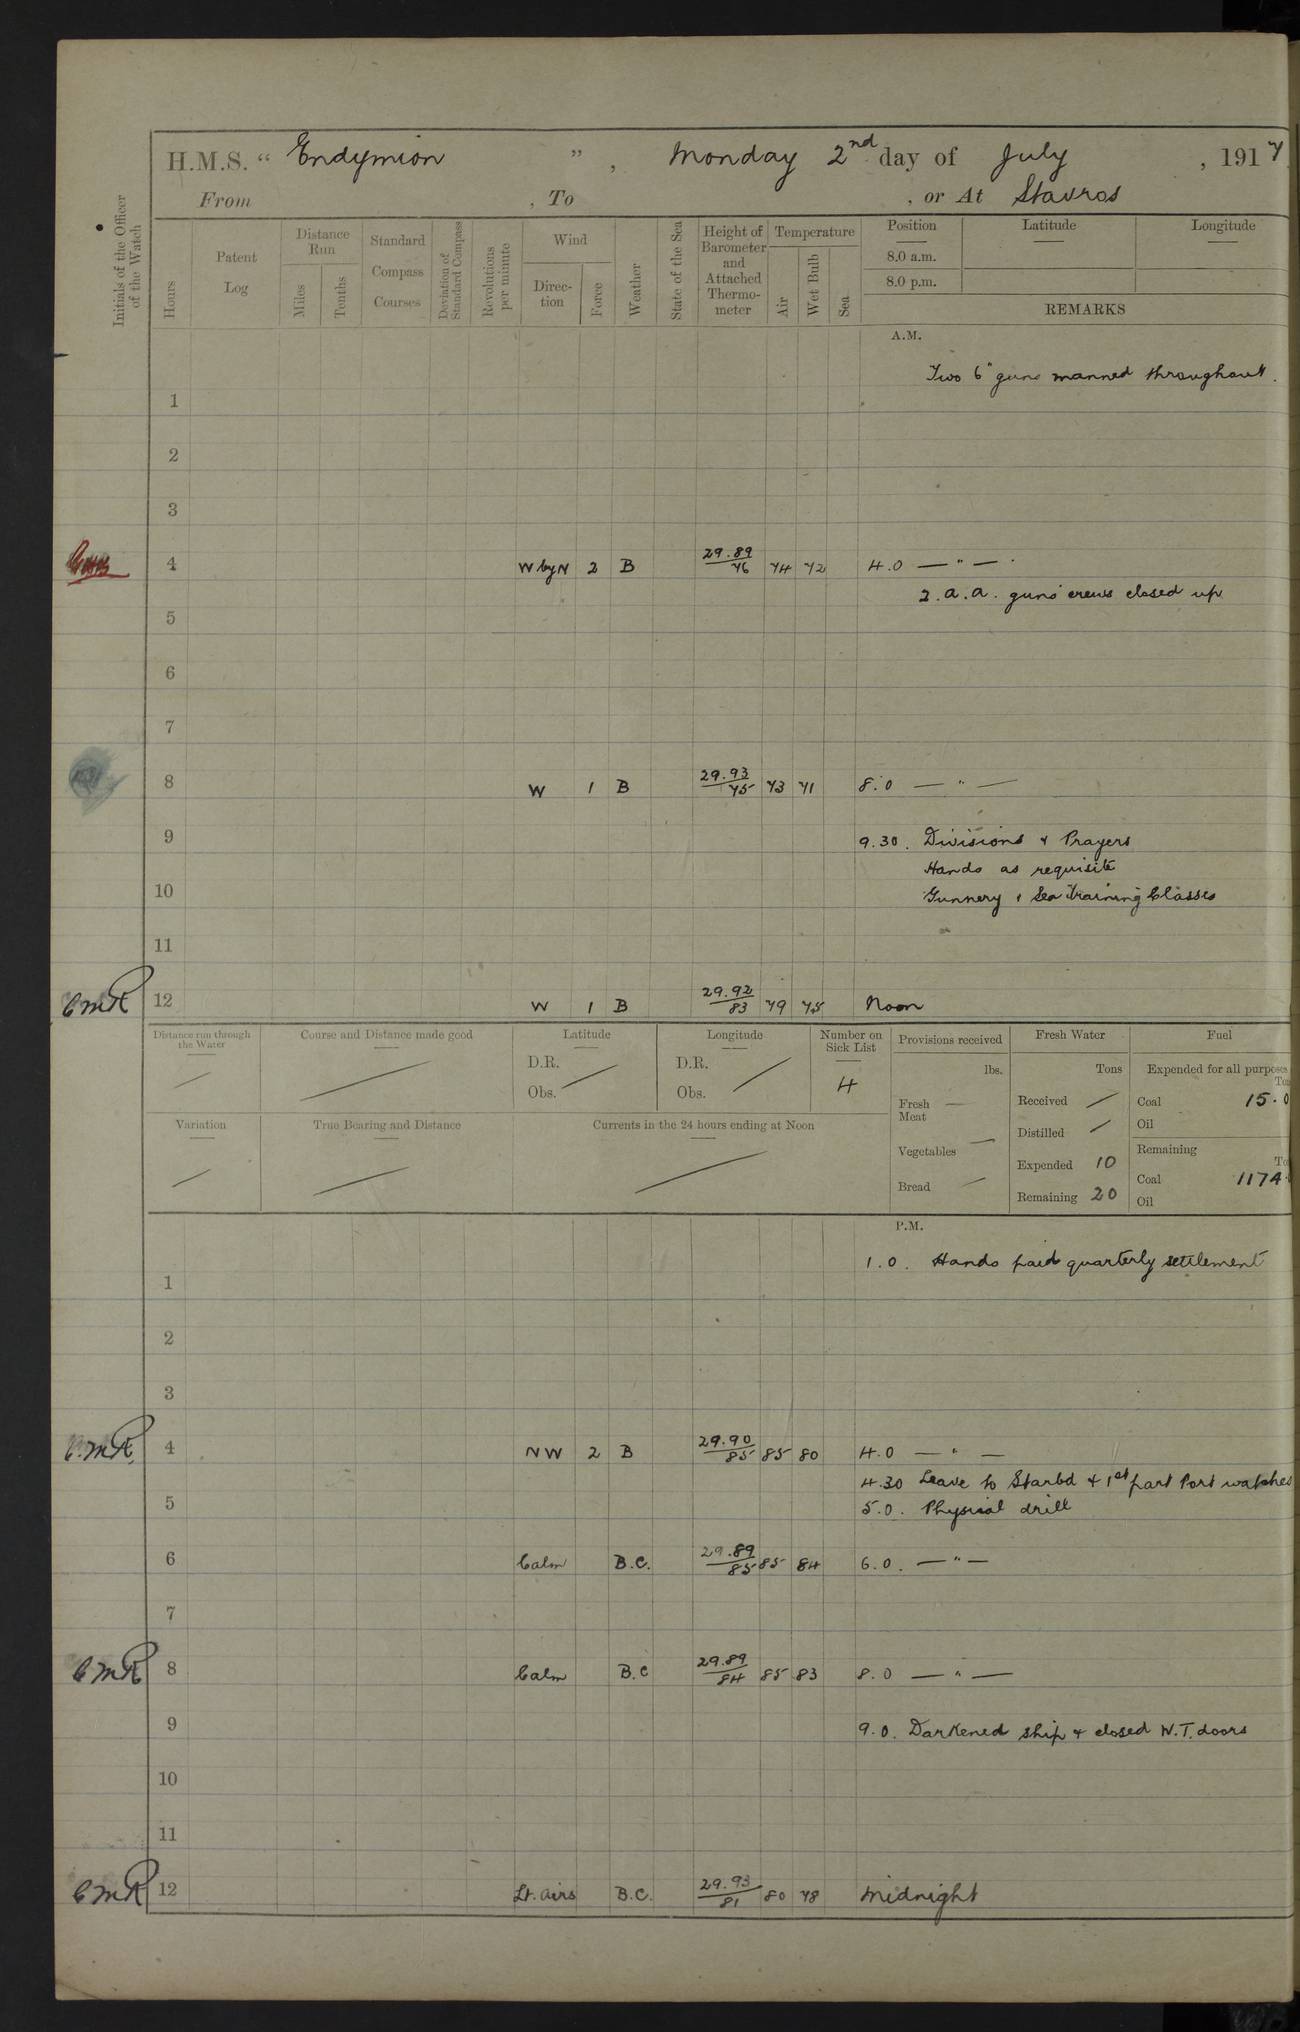 H.M.S. " Endymion ", Monday 2nd day of July, 1917
From , To , or At Stavros
Initials of the Officer of the Watch
Hours
Patent Log
Distance Run
Miles
Tenths
Standard Compass Courses
Deviation of Standard Compass
Revolutions per minute
Wind
Direc-tion
Force
Weather
State of the Sea
Height of Barometer and Attached Thermo-meter
Temperature
Air
Wet Bulb
Sea
Position Latitude Longitude
8.0 a.m.
8.0 p.m.
REMARKS
A.M.
Two 6" guns manned throughout.
1
2
3
4 W by N 2 B 29.89/76 74 72 4.0 — " — .
2. a.a. guns crews closed up
5
6
7
8 W 1 B 29.93/75 73 71 8.0 — " —
9 9.30. Divisions & Prayers
Hands as requisite
10 Gunnery & Sea Training Classes
11
CMR 12 W 1 B 29.92/83 79 75 Noon
Distance run through the Water
Course and Distance made good
Latitude
D.R.
Obs.
Longitude
D.R.
Obs.
Number on Sick List
4
Provisions received
lbs.
Fresh Meat —
Vegetables —
Bread —
Fresh Water
Tons
Received /
Distilled /
Expended 10
Remaining 20
Fuel
Expended for all purposes
Coal 15.0
Oil
Remaining
Coal 1174.
Oil
Variation
True Bearing and Distance
Currents in the 24 hours ending at Noon
P.M.
1.0. Hands paid quarterly settlement
1
2
3
C.M.R. 4 NW 2 B 29.90/85 85 80 4.0 — " —
4.30 Leave to Starbd & 1st part Port watches
5 5.0. Physical drill
6 Calm B.C. 29.89/85 85 84 6.0. — " —
7
CMR 8 Calm B.C 29.89/84 85 83 8.0 — " —
9 9.0. Darkened ship & closed W.T. doors
10
11
CMR 12 Lt. airs B.C. 29.93/81 80 78 Midnight